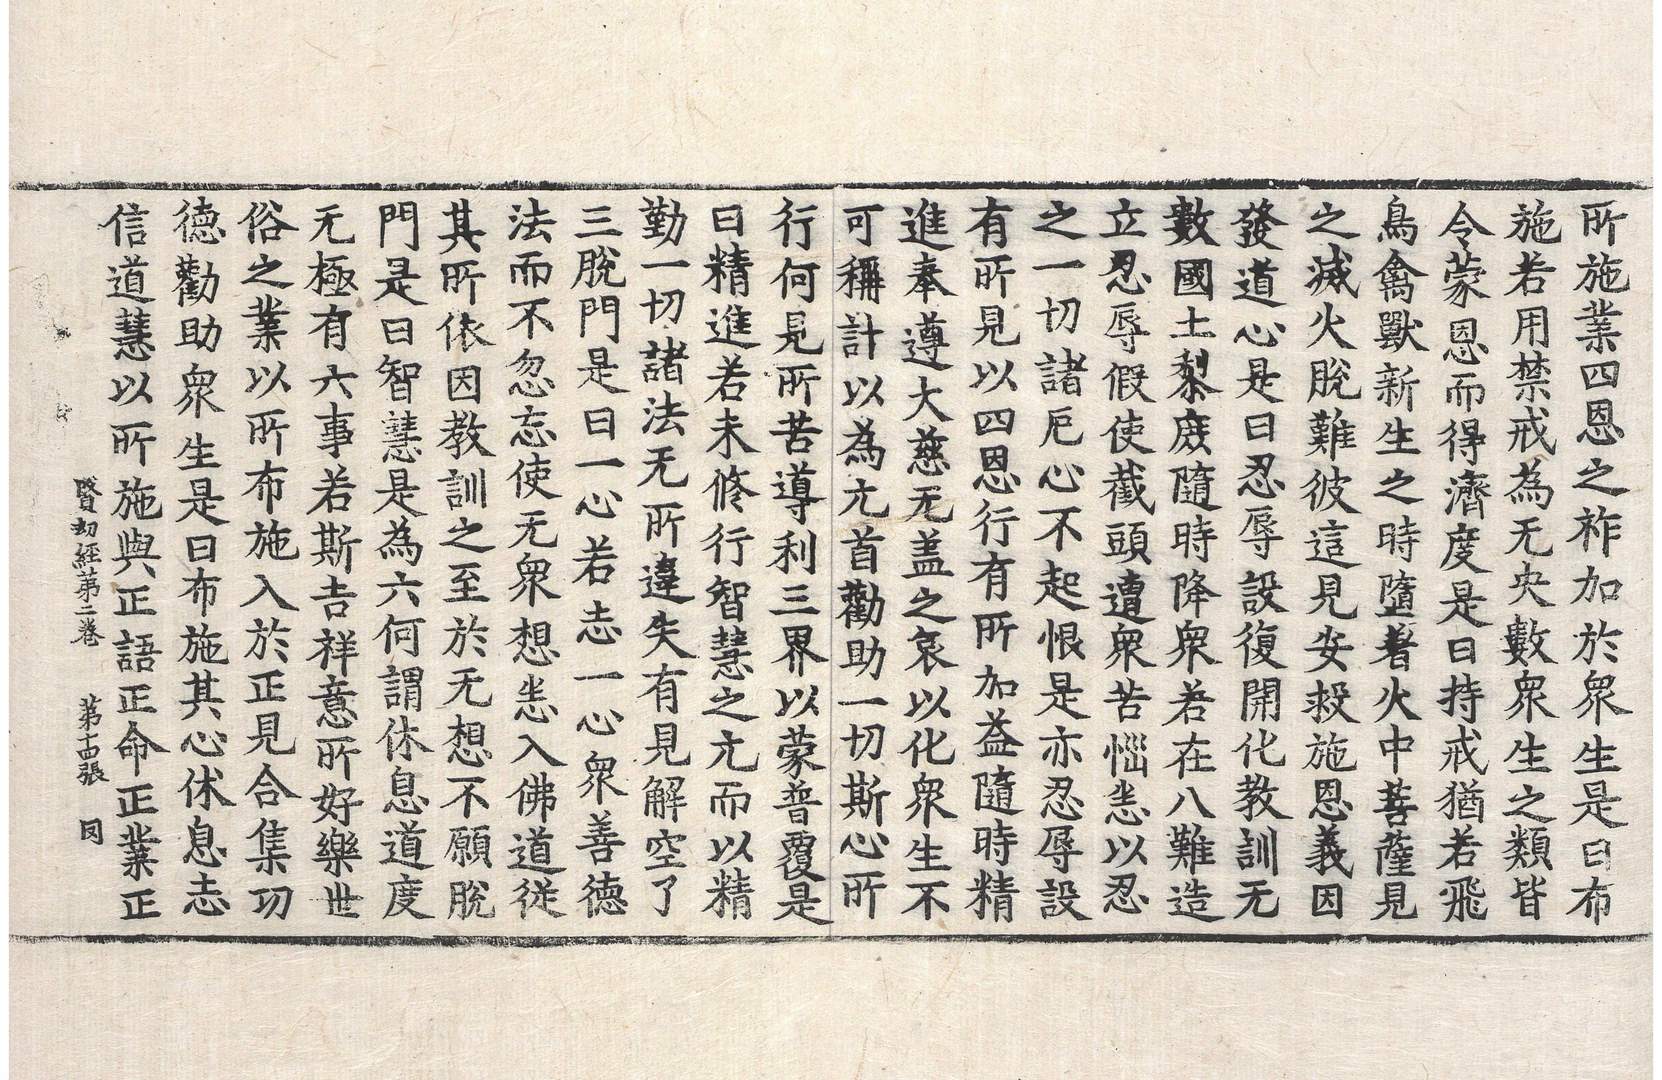 所施業四恩之祚加於衆生是曰布
施若用禁戒為无央數衆生之類皆
令蒙恩而得濟度是曰持戒猶若飛
鳥禽獸新生之時墮著火中菩薩見
之滅火脫難彼這見安投施恩義因
發道心是曰忍辱設復開化教訓无
數國土黎庶隨時降衆若在八難造
立忍辱假使截頭遭衆苦惱恙以忍
之一切諸厄心不起恨是亦忍辱設
有所見以四恩行有所加益隨時精
進奉遵大慈无盖之哀以化衆生不
可稱計以為亢首勸助一切斯心所
行何見所苦導利三界以蒙普覆是
曰精進若未修行智慧之亢而以精
勤一切諸法无所違失有見解空了
三脫門是曰一心若志一心衆善德
法而不忽忘使无衆想恙入佛道從
其所依因教訓之至於无想不願脫
門是曰智慧是為六何謂休息道度
无極有六事若斯吉祥意所好樂世
俗之業以所布施入於正見合集功
德勸助衆生是曰布施其心休息志
信道慧以所施與正語正命正業正
賢劫經第二卷 第十四張 同